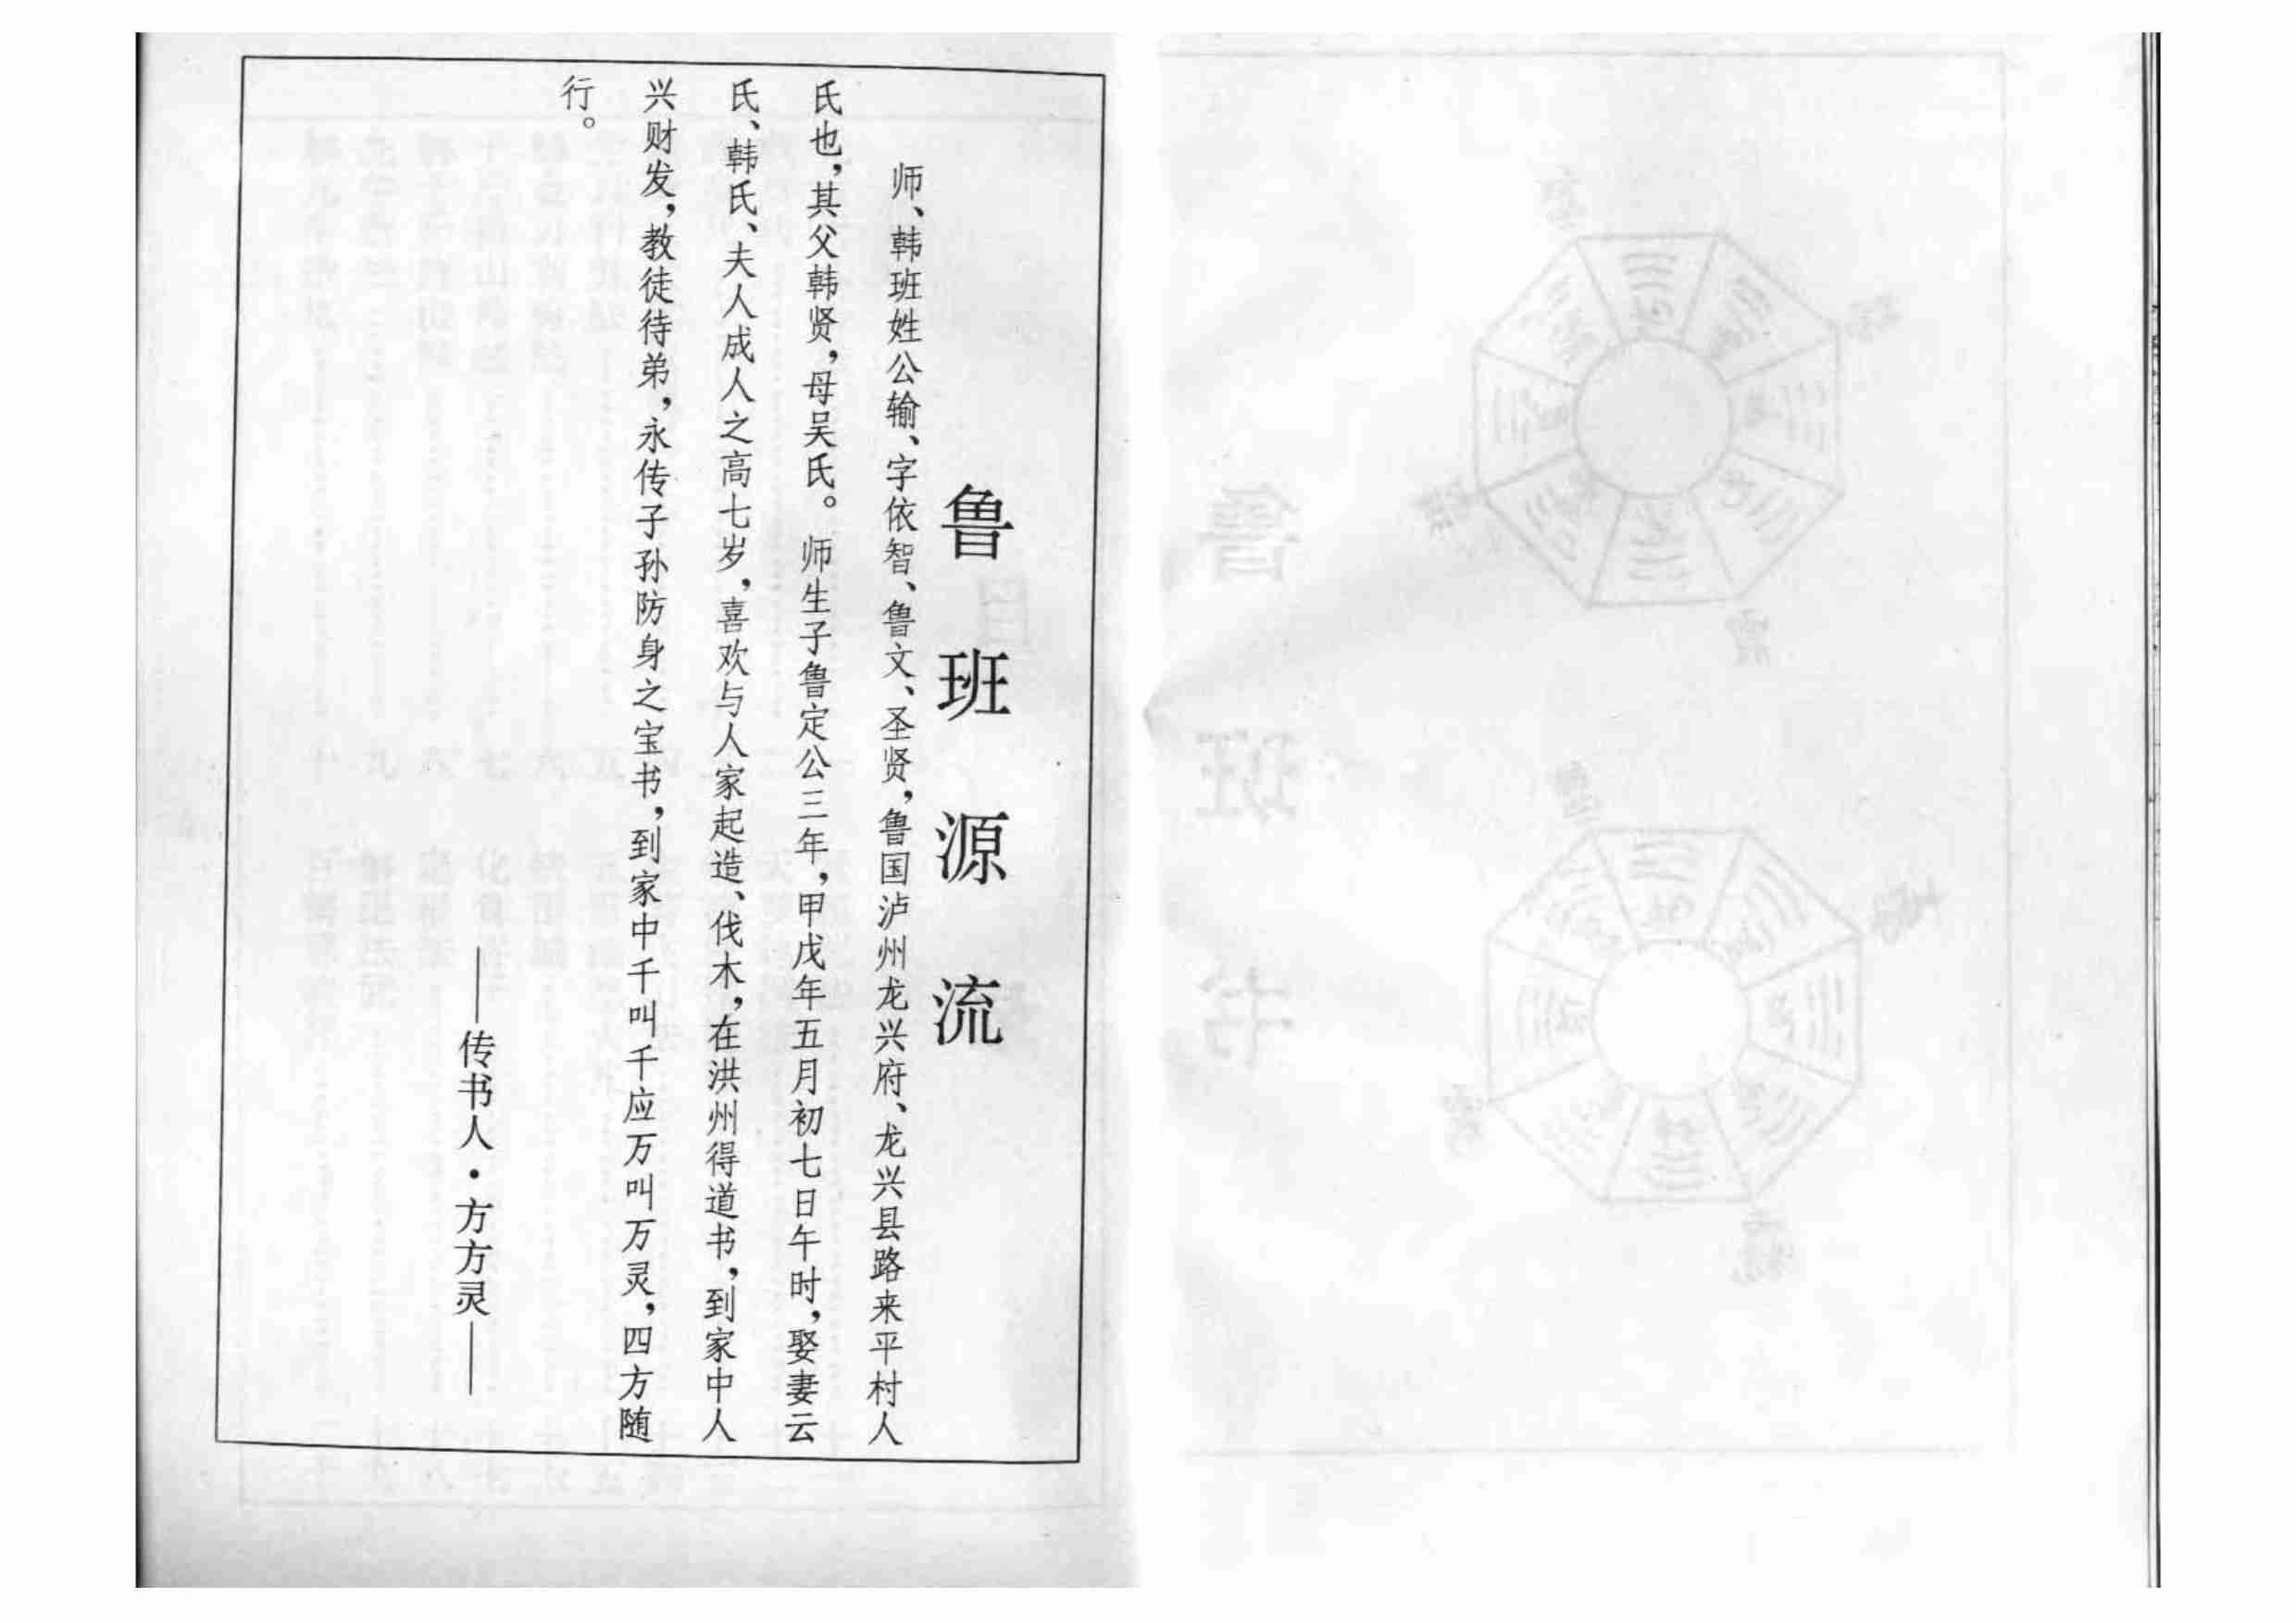 鲁班源流
师、韩班姓公输、字依智、鲁文、圣贤，鲁国泸州龙兴府、龙兴县路来平村人
氏也，其父韩贤，母吴氏。师生子鲁定公三年，甲戊年五月初七日午时，娶妻云
氏、韩氏、夫人成人之高七岁，喜欢与人家起造、伐木，在洪州得道书，到家中人
兴财发，教徒待弟，永传子孙防身之宝书，到家中千叫千应万叫万灵，四方随
行。
——传书人·方方灵——